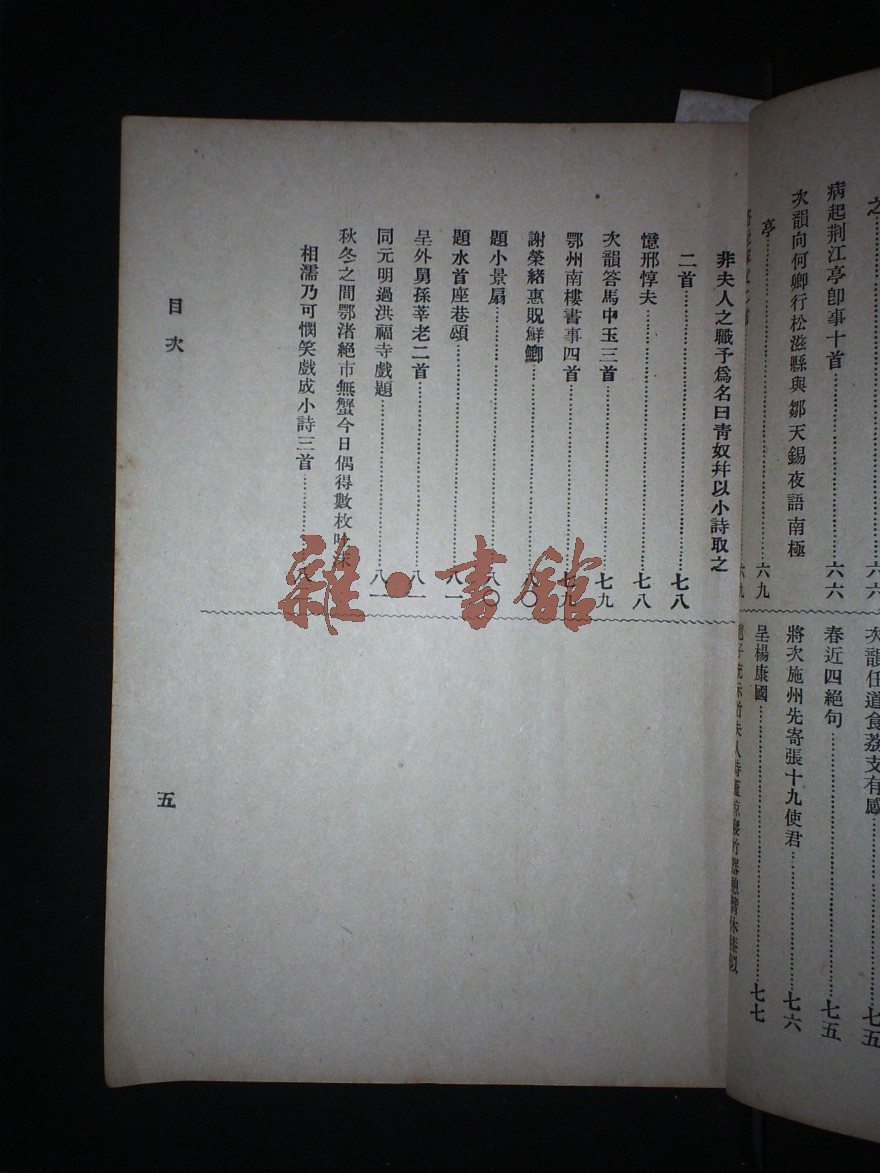 之……六六
病起荆江亭卽事十首……六六
次韻向何卿行松滋縣與鄒天錫夜語南極
亭……六九
六九
次韻任道食荔支有感……七五
春近四絕句……七五
將次施州先寄張十九使君……七六
呈楊康國……七七
非夫人之職予爲名曰靑奴幷以小詩取之
二首……七八
憶邢惇夫……七八
次韻答馬中玉三首……七九
鄂州南樓書事四首……七九
謝榮緒惠貺鮮鯽……八〇
題小景扇……八〇
題水首座巷頌……八一
呈外舅孫莘老二首……八一
同元明過洪福寺戲題……八一
秋冬之間鄂渚絕市無蟹今日偶得數枚吐沫
相濡乃可憫笑戲成小詩三首……八
目次
五
雜·書館